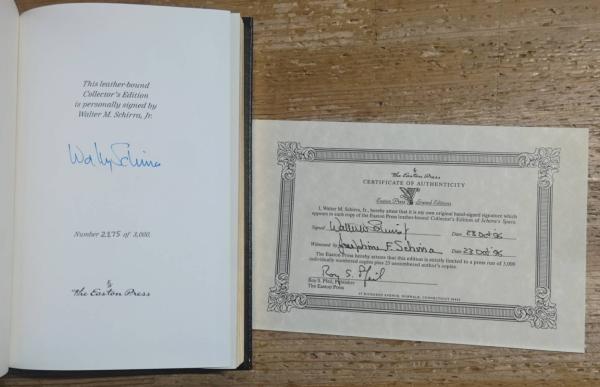 This leather-bound
Collector's Edition
is personally signed by
Walter M. Schirra, Jr.
Wally Schirra
Number 2175 of 3,000.
The Easton Press
The Easton Press
CERTIFICATE OF AUTHENTICITY
Easton Press Signed Editions
I, Walter M. Schirra, Jr., hereby attest that it is my own original hand-signed signature which
appears in each copy of the Easton Press leather-bound Collector's Edition of Schirra's Space.
Signed Date 23 Oct '96
Witnessed by Josephine F. Schirra Date 23 Oct '96
The Easton Press hereby attests that this edition is strictly limited to a press run of 3,000
individually numbered copies plus 25 unnumbered author's copies.
Roy S. Pfeil
Roy S. Pfeil, Publisher
The Easton Press
47 RICHARDS AVENUE, NORWALK, CONNECTICUT 06857